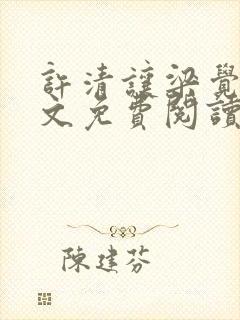 許清讓梁覺
文免費閱讀
陳建芬